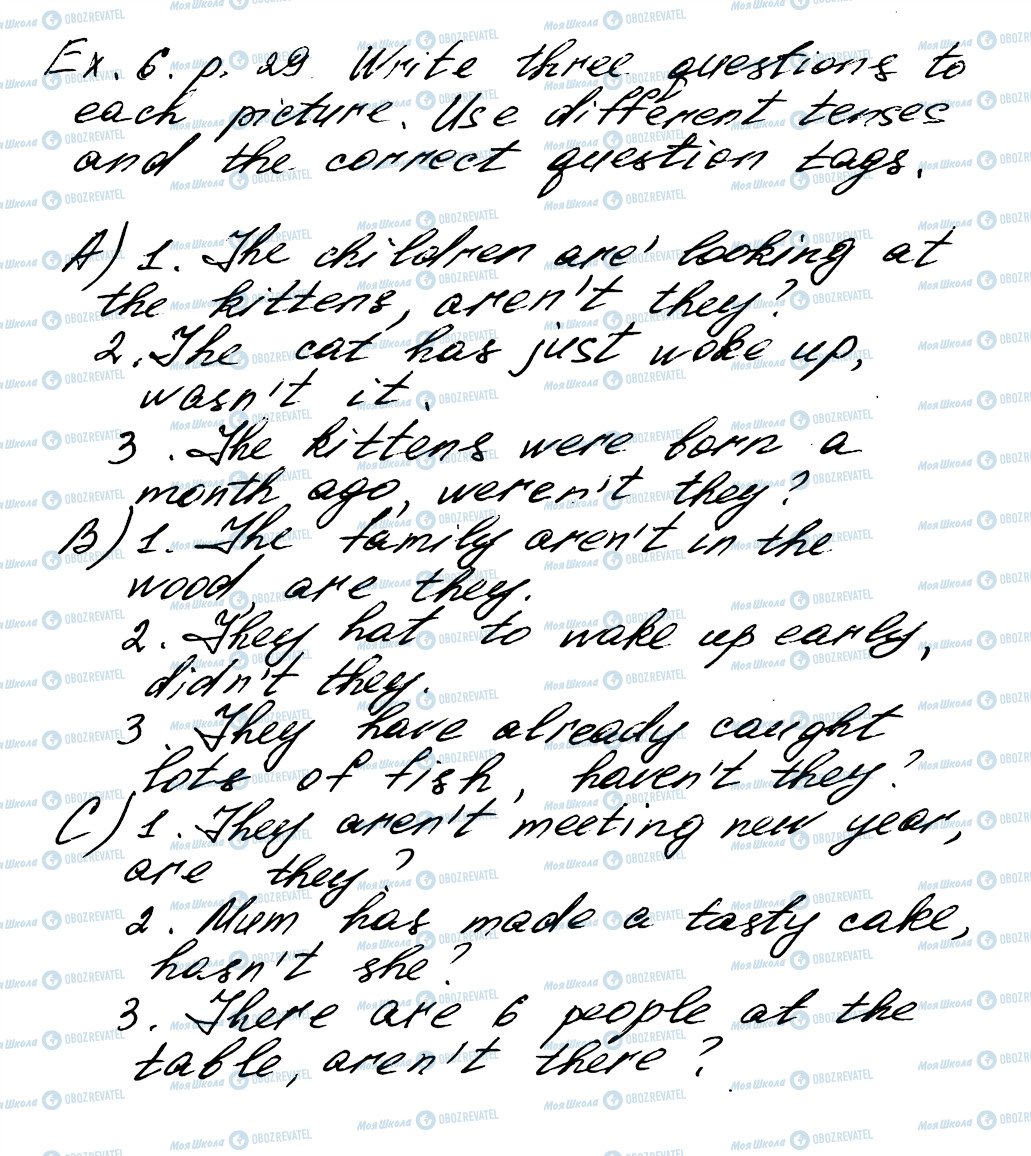 Ex. 6. p. 29 Write three questions to
each picture. Use different tenses
and the correct question tags.
A) 1. The children are looking at
the kittens, aren't they?
2. The cat has just woke up,
wasn't it.
3. The kittens were born a
month ago, weren't they?
B) 1. The family aren't in the
wood, are they.
2. They hat to wake up early,
didn't they.
3. They have already caught
lots of fish, haven't they?
C) 1. They aren't meeting new year,
are they?
2. Mum has made a tasty cake,
hasn't she?
3. There are 6 people at the
table, aren't there?
Моя Школа OBOZREVATEL